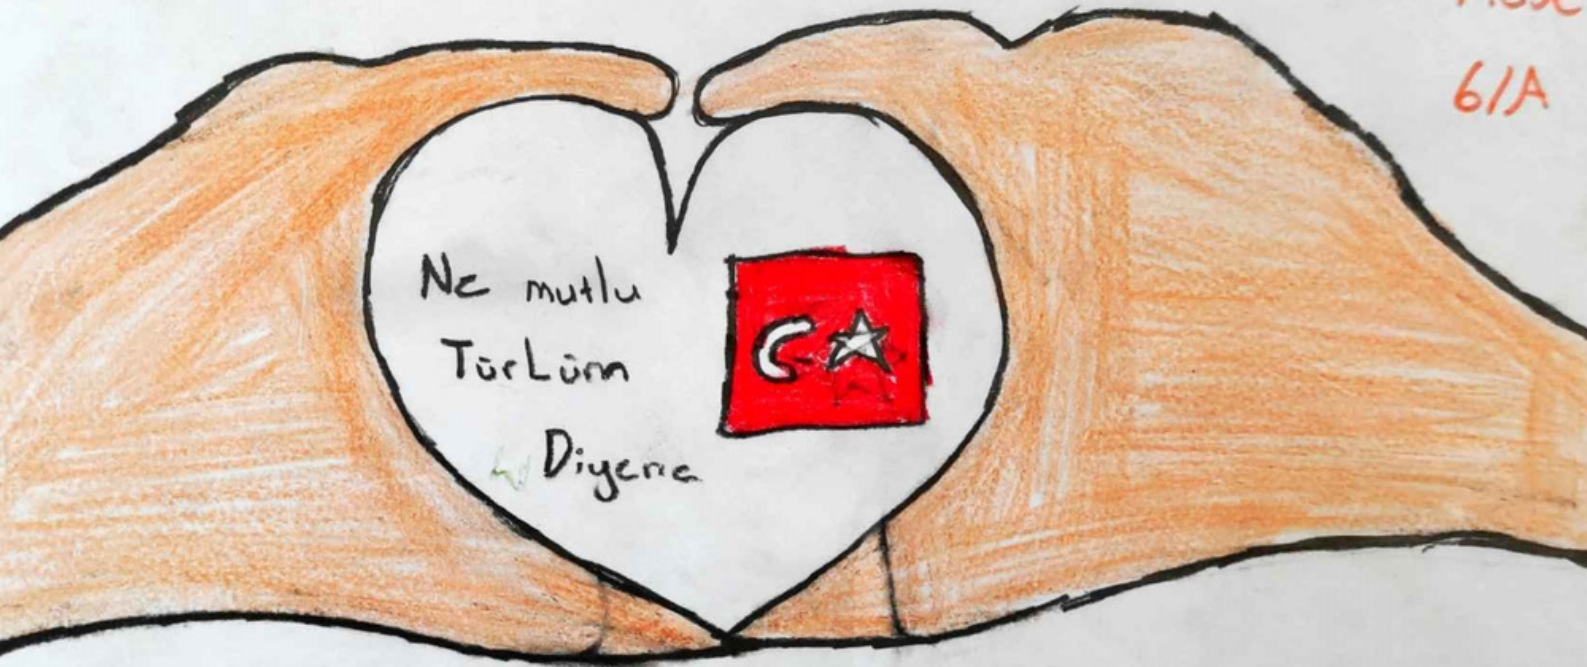 6/A
Ne mutlu
Türküm
Diyene